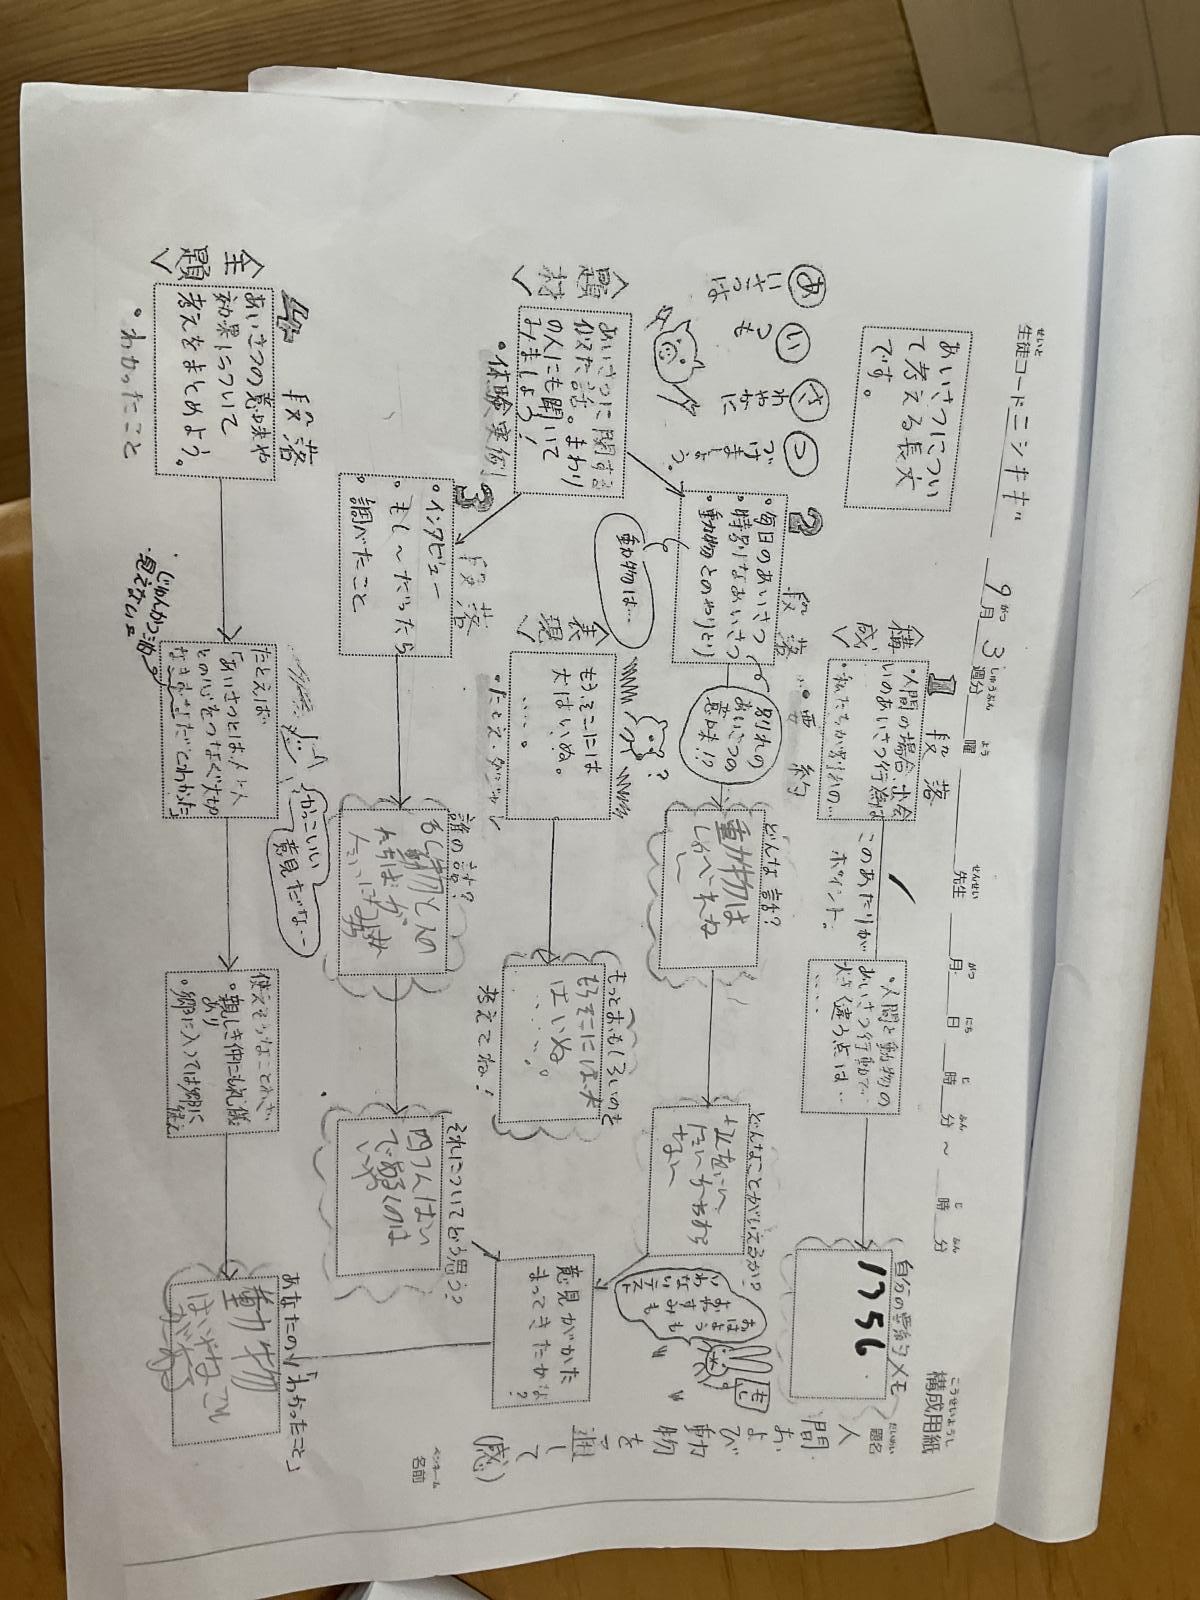 構成用紙
こうせいようし
生徒コード ニシキギ 9月3週分 曜 先生 月 日 時 分〜 時 分
題名
だいめい
人間および動物を通して(感)
名前
ペンネーム
あいさつについ
て考える長文
です。
あ いさつは
い つも
さ わやかに
つ づけましょう。
<構成>
1段落
・人間の場合、出会
いのあいさつ行動は
・私たちが別れの…
このあたりが
ポイント。
・人間と動物の
あいさつ行動で
大きく違う点は
・・・・
自分の要約メモ
1356
・要約
2段落
・毎日のあいさつ
・特別なあいさつ
・動物とのやりとり
動物は…
別れの
あいさつの
意味!?
どんな話?
動物は
しゃべれね
〜
どんなことがいえるか?
おはよう
おやすみも
いわない
<題材>
あいさつに関する
似た話。まわり
の人にも聞いて
みましょう!
・体験実例
<表現>
もうそこには
犬はいぬ。
・・・・。
・たとえ・ダジャレ
もっとおもしろいのを
もうそこには犬
はいぬ。
・・・・。
考えてね!
意見がかた
まってきたかな
?
3段落
・インタビュー
・もし〜だったら
・調べたこと
誰の話?
それについてどう思う?
<主題>
4段落
あいさつの意味や
効果について
考えをまとめよう。
・わかったこと
たとえば
「あいさつとは、人と人
との心をつなぐ大切
なきずな」だとわかった
・じゅんかつ油
・見えない
かっこいい
意見だな…
使えそうなことわざ
・親しき仲にも礼儀
あり
・郷に入っては郷に
従え
あなたの「わかったこと」
動物